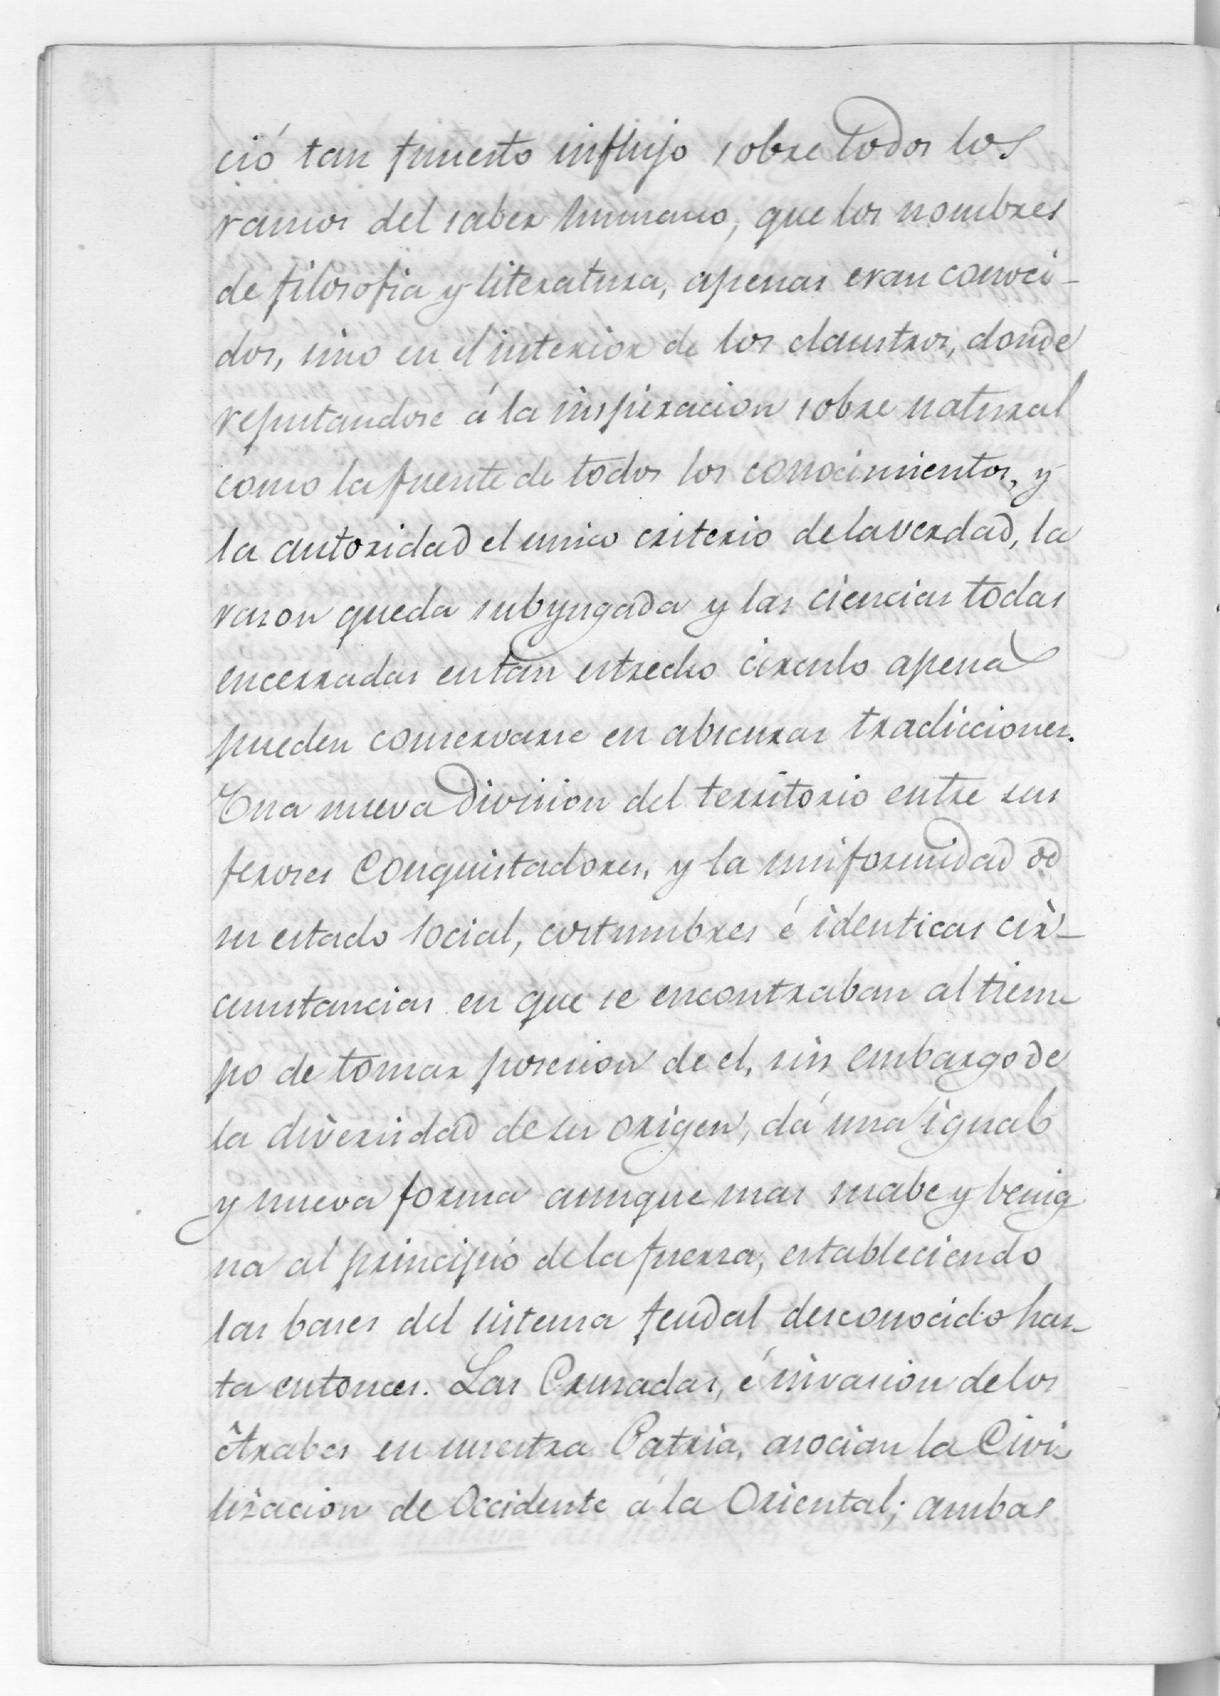 ció tan funesto influjo sobre todos los
ramos del saber humano, que los nombres
de filosofia y literatura, apenas eran conoci-
dos, sino en el interior de los claustros, donde
reputandose á la inspiracion sobre natural
como la fuente de todos los conocimientos, y
la autoridad el unico criterio de la verdad, la
rason queda subyugada y las ciencias todas
encerradas en tan estrecho circulo apenas
pueden conservarse en abscuras tradicciones.
Una nueva division del territorio entre sus
feroses Conquistadores, y la uniformidad de
su estado social, costumbres é identicas cir-
cunstancias en que se encontraban al tiem-
po de tomar posesion de el, sin embargo de
la diversidad de su origen, dá una igual
y nueva forma aunque mas suabe y benig-
na al principio de la fuerza, estableciendo
las bases del sistema feudal desconocido has-
ta entonces. Las Crusadas, é invasion de los
Arabes en nuestra Patria, asocian la Civi-
lizacion de Occidente á la Oriental; ambas